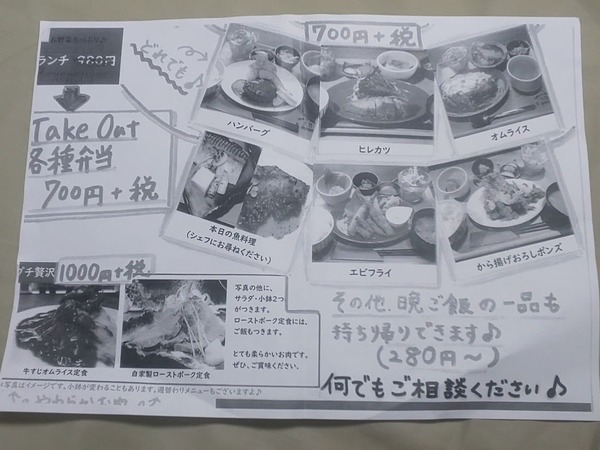 お野菜たっぷり♪
ランチ 980円
どれでも♪
700円+税
Take Out
各種弁当
700円+税
ハンバーグ
ヒレカツ
オムライス
本日の魚料理
(シェフにお尋ねください)
エビフライ
から揚げおろしポンズ
プチ贅沢 1000円+税
写真の他に、
サラダ・小鉢2つ
がつきます。
ローストポーク定食には、
ご飯もつきます。
とても柔らかいお肉です。
ぜひ、ご賞味ください。
牛すじオムライス定食
自家製ローストポーク定食
その他、晩ご飯の一品も
持ち帰りできます♪
(280円〜)
何でもご相談ください♪
※写真はイメージです。小鉢が変わることもあります。週替わりメニューもございますよ♪